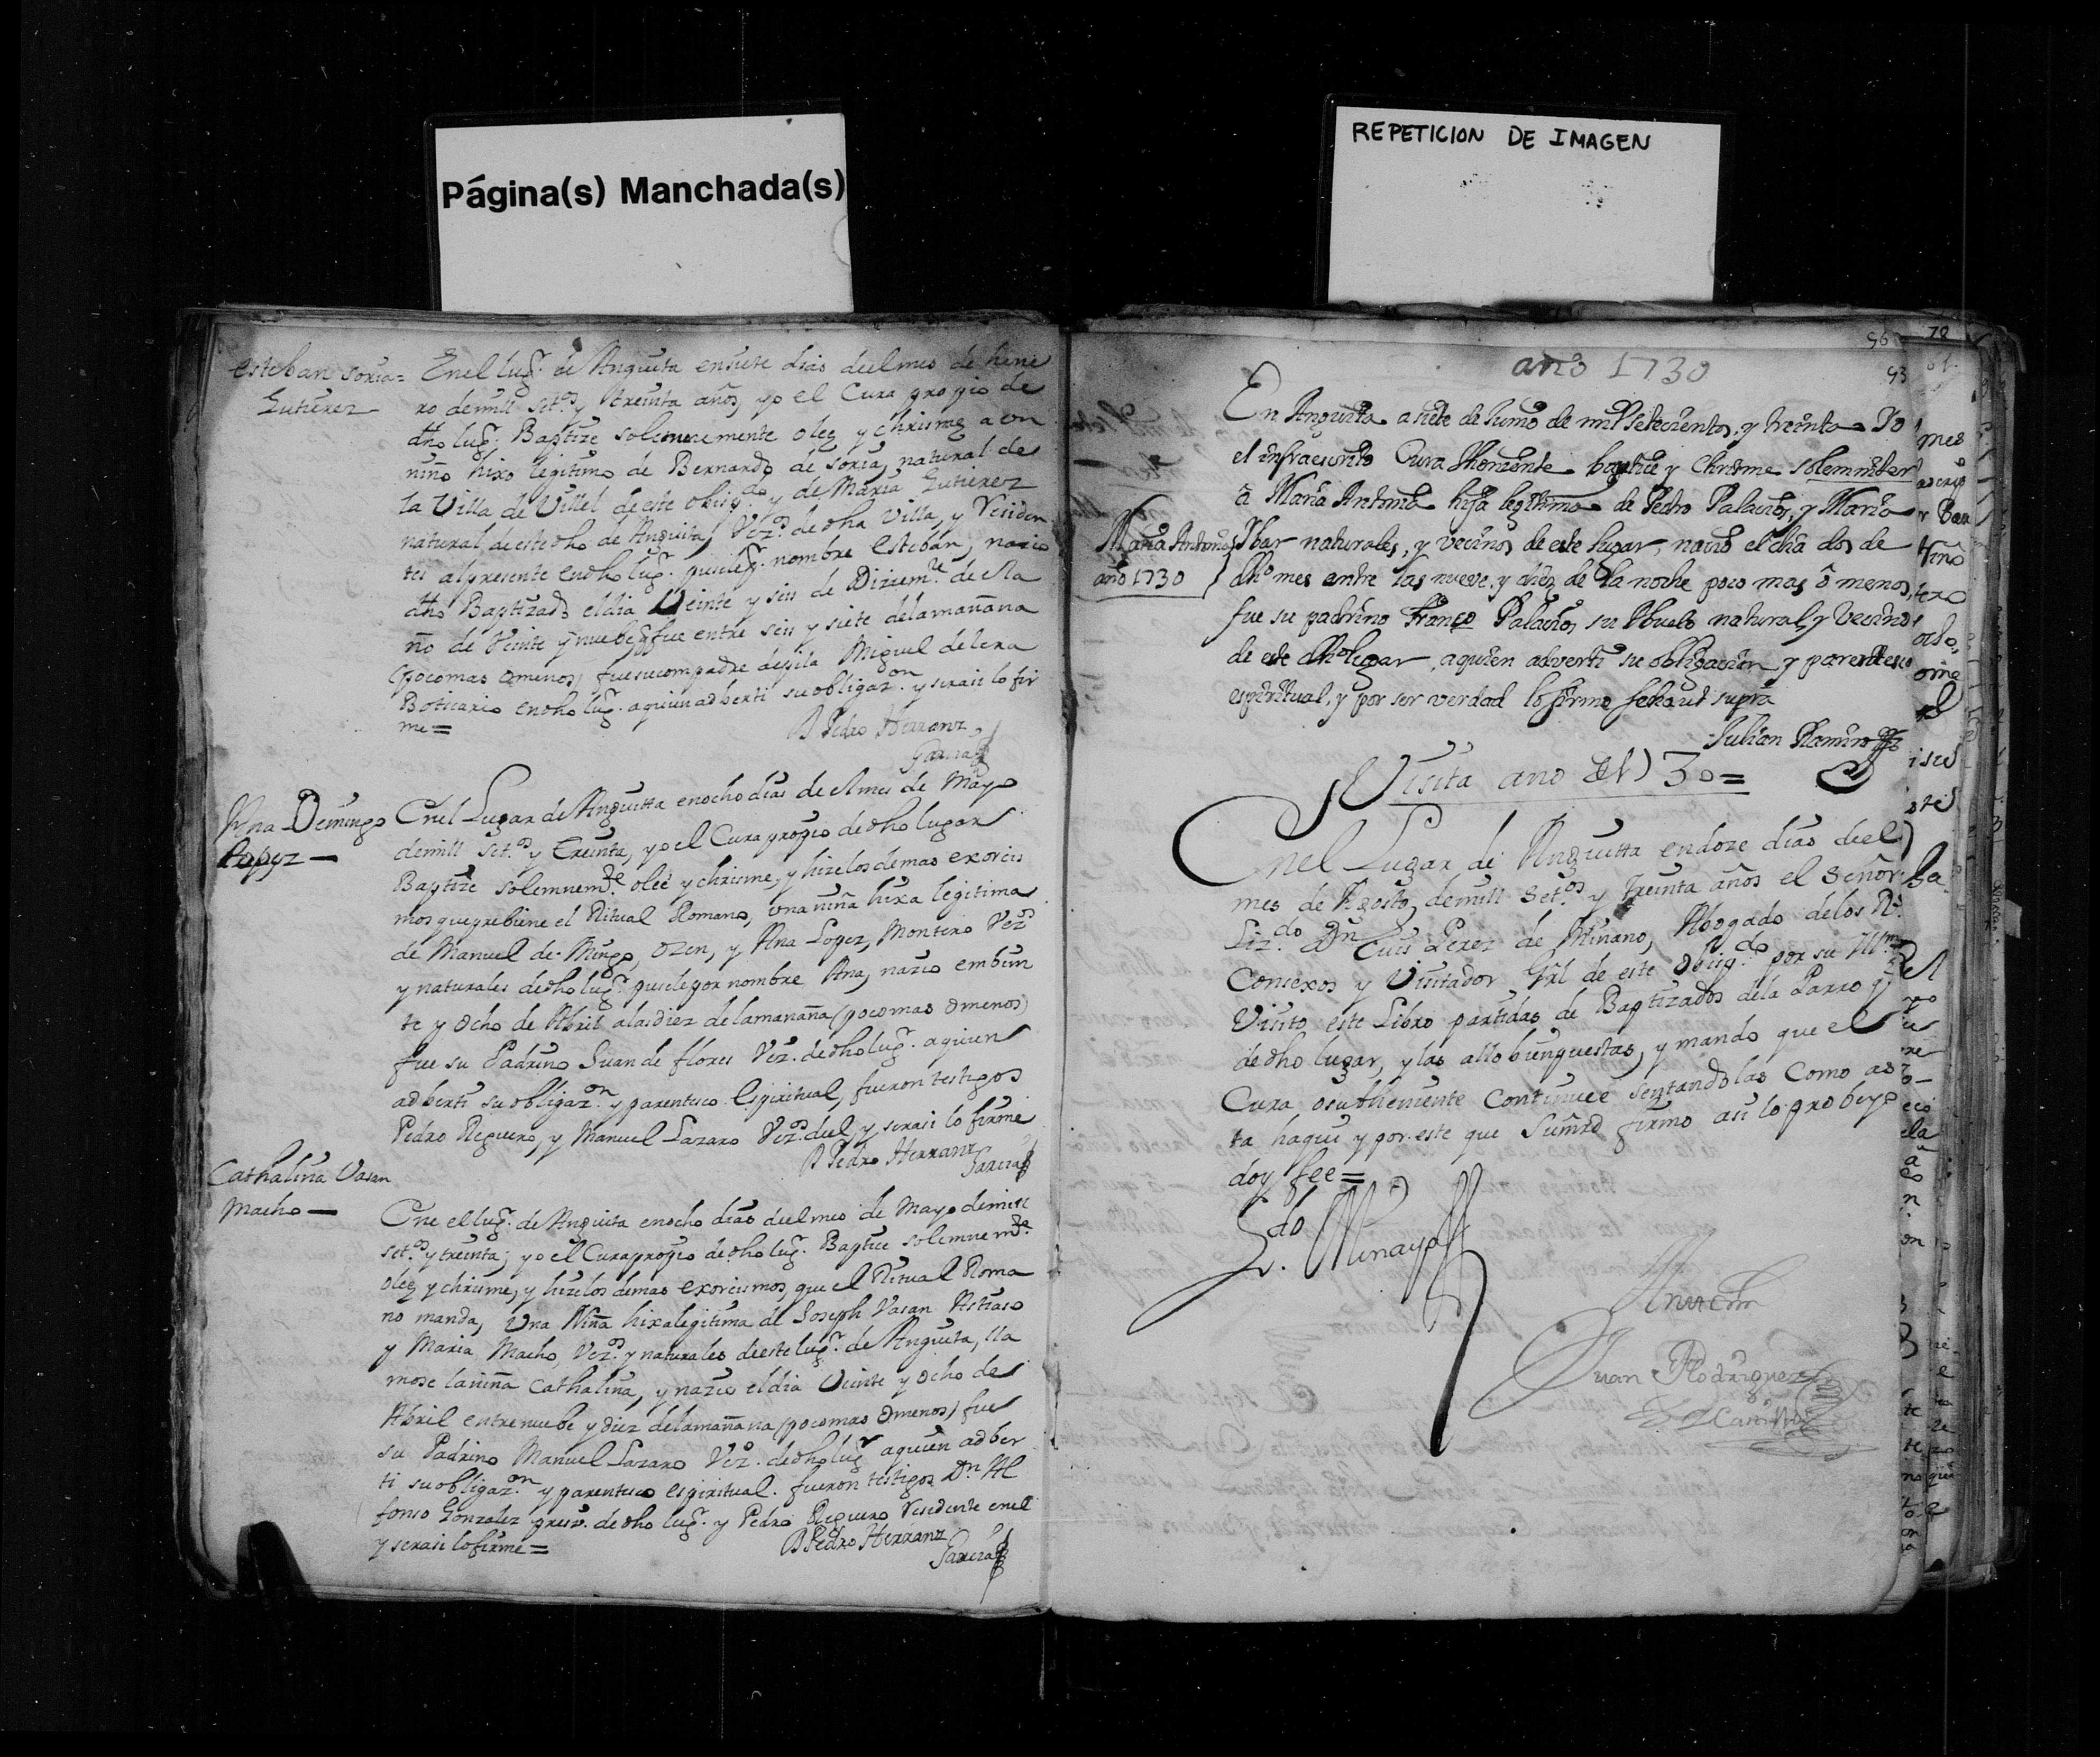 Página(s) Manchada(s)
REPETICION DE IMAGEN
esteban soria=
Gutierez
En el lugr. de Anguita en siete dias del mes de hene
ro de mill setos. y treinta años, yo el Cura propio de
dho lugr. Baptize solemnemente oleé y chrisme a un
niño hixo legitimo de Bernardo de Soria, natural de
la Villa de Villel de este obispdo. y de Maria Gutierez
natural de este dho de Anguita, Vezos. de dha Villa, y residen
tes al presente en dho lugr. pusele pr. nombre esteban, nazio
dho Baptizado el dia Veinte y seis de Diziemre. de el a
ño de Veinte y nuebe, q fue entre seis y siete de la mañana
(poco mas o menos) fue su compadre de pila Miguel de lera
Boticario en dho lugr. a quien adberti su obligazon. y ser asi lo fir
me=
B Pedro Herranz
Garzia
Ana Demingo
Lopez—
En el Lugar de Anguitta en ocho dias de el mes de Mayo
de mill setos. y treinta, yo el Cura propio de dho lugar
Baptize solemnemte. oleé y chrisme, y hize los demas exorcis
mos que prebiene el Ritual Romano, una niña hixa legitima
de Manuel de Mingo, Ozen, y Ana Lopez, Montero Vezos
y naturales de dho lugr. pusele por nombre Ana, nazio em bein
te y ocho de Abril a las diez de la mañana (poco mas o menos)
fue su Padrino Juan de flores Vezo. de dho lugr. a quien
adberti su obligazon. y parentesco Espiritual, fueron testigos
Pedro Reguero, y Manuel Lazaro Vezos. de el, y ser asi lo firme
B Pedro Herranz
Garzia
Cathalina Vasan
Macho—
En el lugr. de Anguita en ocho dias del mes de Mayo de mill
setos. y treinta; yo el Cura propio de dho lugr. Baptize solemnemte.
oleé y chrisme, y hize los demas exorcismos, que el Ritual Roma
no manda, una Niña hixa legitima de Joseph Vasan Astraso
y Maria Macho, Vezos. y naturales de este lugr. de Anguita, lla
mose la niña Cathalina, y nazio el dia Veinte y ocho de
Abril entre nuebe y diez de la mañana (poco mas o menos) fue
su Padrino Manuel Lazaro Vezo. de dho lugr a quien adber
ti su obligazon. y parentesco espiritual. fueron testigos Dn. Al
fonso Gonzalez presvo. de dho lugr. y Pedro Reguero residente en el
y ser asi lo firme=
B Pedro Herranz
Garzia
96
93
año 1730
Maria Antonia
año 1730
En Anguita a siete de Junio de mil setecientos, y treinta Yo
el infraescrito Cura theniente baptice y chrisme solemniter
â Maria Antonia hija legitima de Pedro Palacios, y Maria
Ybar naturales, y vecinos de este lugar, nacio el dia dos de
dho mes entre las nueve, y diez de la noche poco mas ô menos,
fue su padrino Franco Palacios su Abuelo natural, y vecino
de este dho lugar, a quien adverti su obligacion y parentesco
espiritual, y por ser verdad lo firmo fecha ut supra
Julian Ramiro
Visita ano del 30=
En el Lugar de Anguitta en doze dias del
mes de Agosto, de mill setos. y treinta años el Señor
Lizdo. Dn Luis Perez de Minano, Abogado de los Rs.
Consexos y Visitador Grl de este obispdo. por su Illma
Visito este Libro partidas de Baptizados de la Parroqa
de dho lugar, y las allo bien puestas, y mando que el
Cura o su theniente continuee sentandolas como as
ta haqui y por este que su mrd firmo asi lo probeyo
doy fee=
Ldo. Minayo
Ante mi
Juan Rodriguez
Carrillo